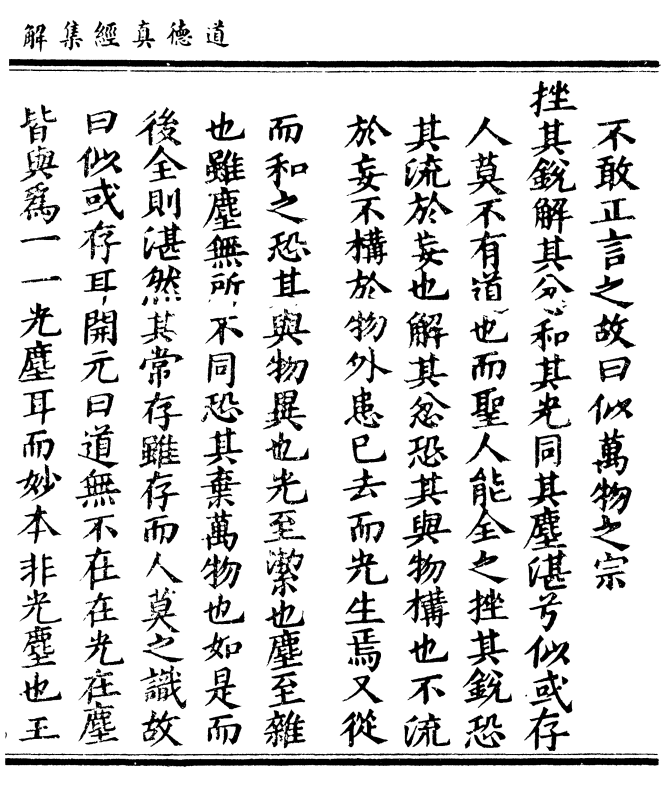 道德真經集解
不敢正言之故曰似萬物之宗
挫其銳解其忿和其光同其塵湛兮似或存
人莫不有道也而聖人能全之挫其銳恐
其流於妄也解其忿恐其與物構也不流
於妄不構於物外患已去而光生焉又從
而和之恐其與物異也光至潔也塵至雜
也雖塵無所不同恐其棄萬物也如是而
後全則湛然其常存雖存而人莫之識故
曰似或存耳開元曰道無不在在光在塵
皆與爲一一光塵耳而妙本非光塵也王